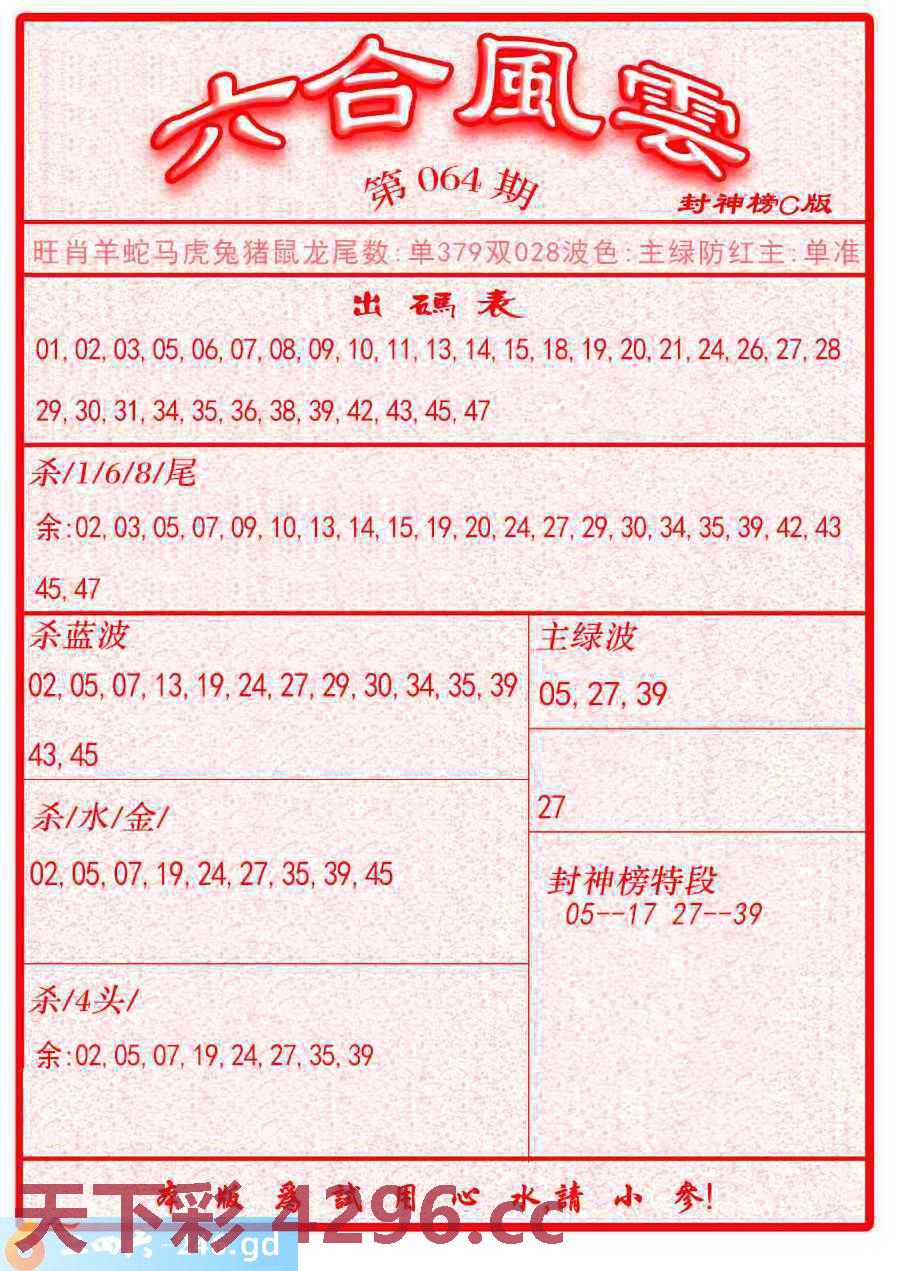 六合風雲
第064期
封神榜C版
旺肖羊蛇马虎兔猪鼠龙尾数:单379双028波色:主绿防红主:单准
出碼表
01,02,03,05,06,07,08,09,10,11,13,14,15,18,19,20,21,24,26,27,28
29,30,31,34,35,36,38,39,42,43,45,47
杀/1/6/8/尾
余:02,03,05,07,09,10,13,14,15,19,20,24,27,29,30,34,35,39,42,43
45,47
杀蓝波
02,05,07,13,19,24,27,29,30,34,35,39
43,45
主绿波
05,27,39
27
杀/水/金/
02,05,07,19,24,27,35,39,45
封神榜特段
05--17 27--39
杀/4头/
余:02,05,07,19,24,27,35,39
本版爲試用心水,請小參!
天下彩 4296.cc